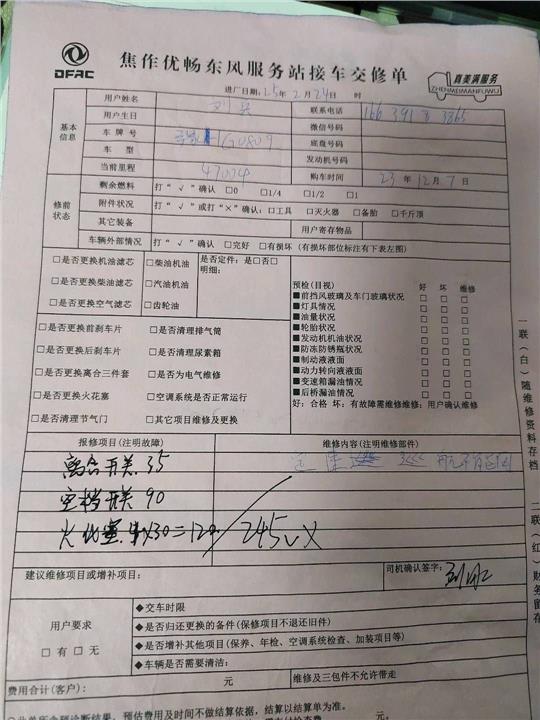 DFAC
焦作优畅东风服务站接车交修单
真美满服务
ZHENMEIMANFUWU
进厂日期:25年2月24日 时
基本信息
用户姓名 刘 联系电话 166 391 3865
用户生日 微信号码
车牌号 G0809 底盘号码
车型 发动机号码
当前里程 47024 购车时间 23年12月7日
修前状态
剩余燃料 打“√”确认 □0 □1/4 □1/2 □1
附件状况 打“√”或打“×”确认:□工具 □灭火器 □备胎 □千斤顶
其它装备 用户寄存物品
车辆外部情况 打“√”确认 □完好 □有损坏(有损坏部位标注有下表左图)
□是否更换机油滤芯 □柴油机油 是否定件:是□否□
□是否更换柴油滤芯 □汽油机油 明细:
□是否更换空气滤芯 □齿轮油
□是否更换前刹车片 □是否清理排气筒
□是否更换后刹车片 □是否清理尿素箱
□是否更换离合三件套 □是否为电气维修
□是否更换火花塞 □空调系统是否正常运行
□是否清理节气门 □其它项目维修及更换
预检(目视) 好 坏 维修
■前挡风玻璃及车门玻璃状况 □ □ □
■灯具情况 □ □ □
■油量状况 □ □ □
■轮胎状况 □ □ □
■发动机机油状况 □ □ □
■防冻防锈瓶状况 □ □ □
■制动液液面 □ □ □
■动力转向液液面 □ □ □
■变速箱漏油情况 □ □ □
■后桥漏油情况 □ □ □
好:合格 坏:有故障需维修维修:用户确认维修
报修项目(注明故障) 维修内容(注明维修部件)
离合开关 35 定速巡 巡航不能用
空档开关 90
火花塞 4×30=120 245 VX
建议维修项目或增补项目: 司机确认签字:
用户要求
□有 □无
◆交车时限
◆是否归还更换的备件(保修项目不退还旧件)
◆是否增补其他项目(保养、年检、空调系统检查、加装项目等)
◆车辆是否需要清洁:
费用合计(客户): 元 维修及三包件不允许带走
预估费用及时间不做结算依据,结算以结算单为准。
元:
一联(白)随维修资料存档
二联(红)财务留存